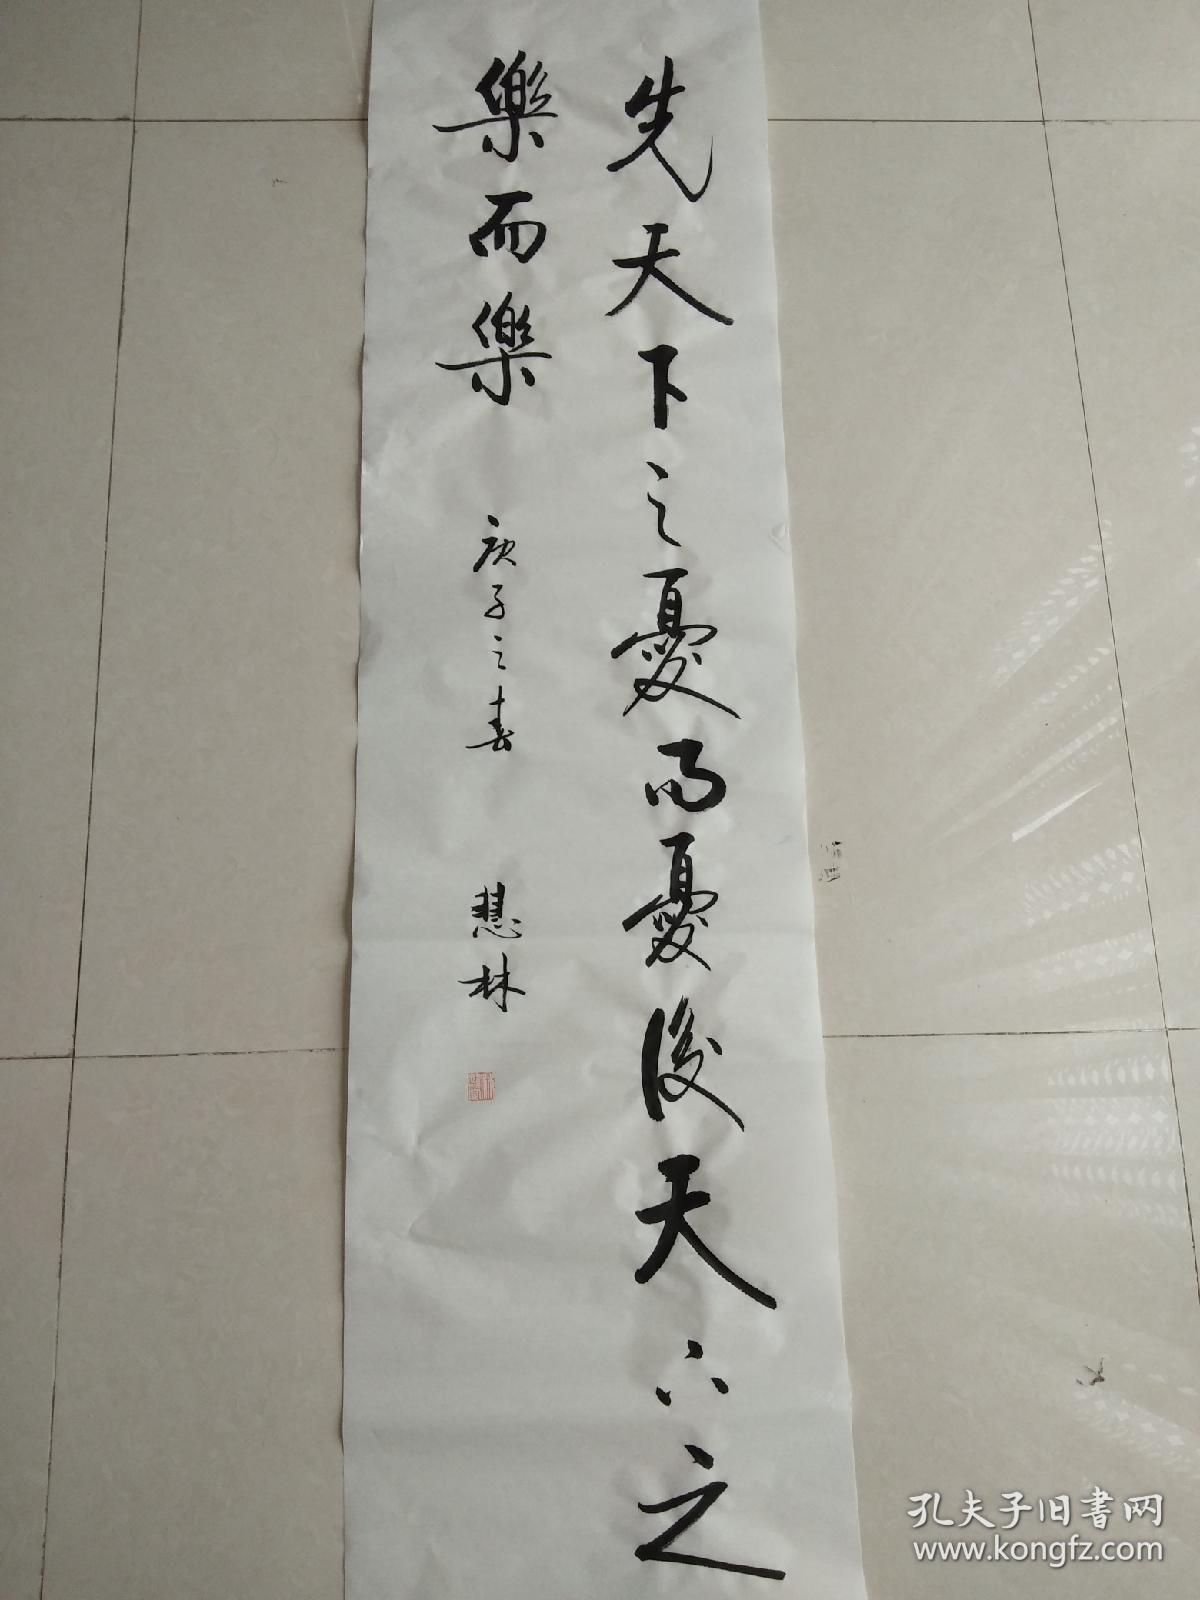 先天下之憂而憂後天下之
樂而樂
庚子之春
慧林
孔夫子旧書网
www.kongfz.com